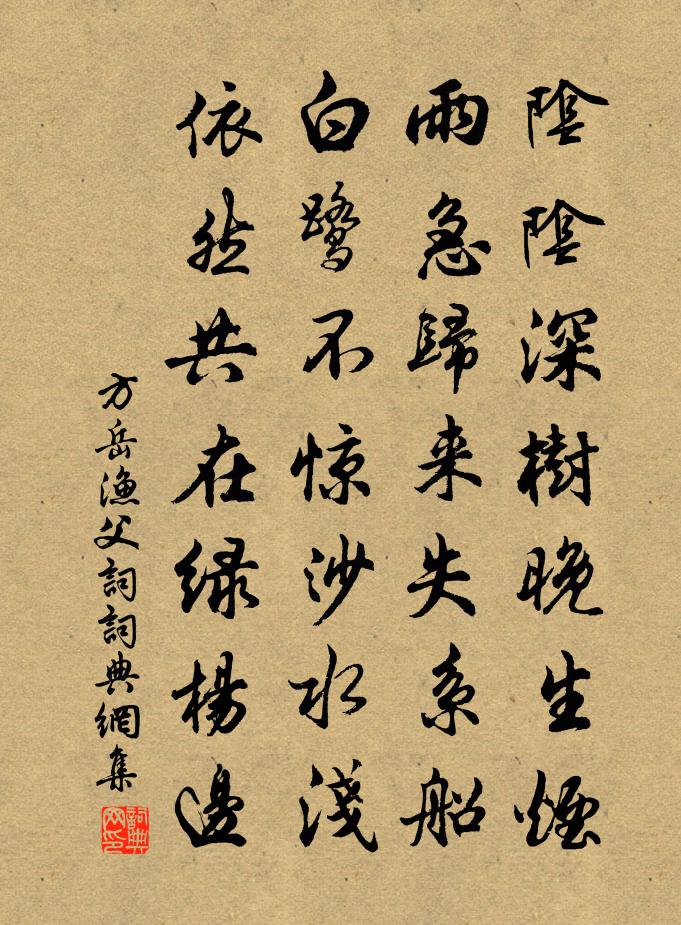 陰陰深樹晚生煙
雨急歸来失系船
白鷺不惊沙水淺
依然共在绿楊邊
方岳漁父詞詞典網集
詞典网印